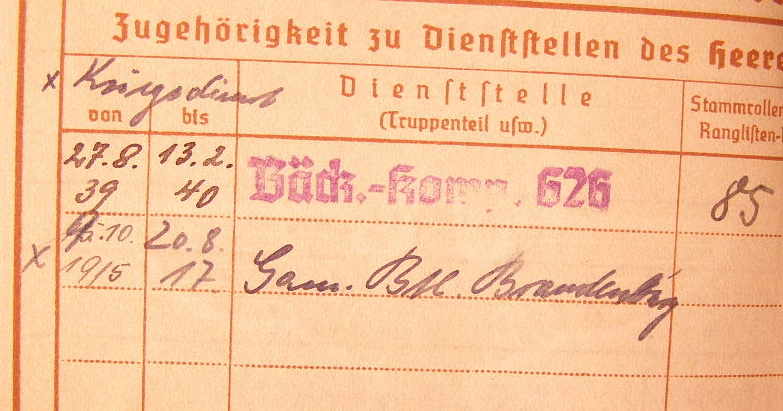 Zugehörigkeit zu Dienststellen des Heere
x Kriegsdienst
von bis
Dienststelle
(Truppenteil usw.)
Stammrollen
Ranglisten-
27.8. 13.2.
39 40
Bäck.-Komp. 626
85
.10. 20.8.
x 1915 17.
Btl. Brandenburg